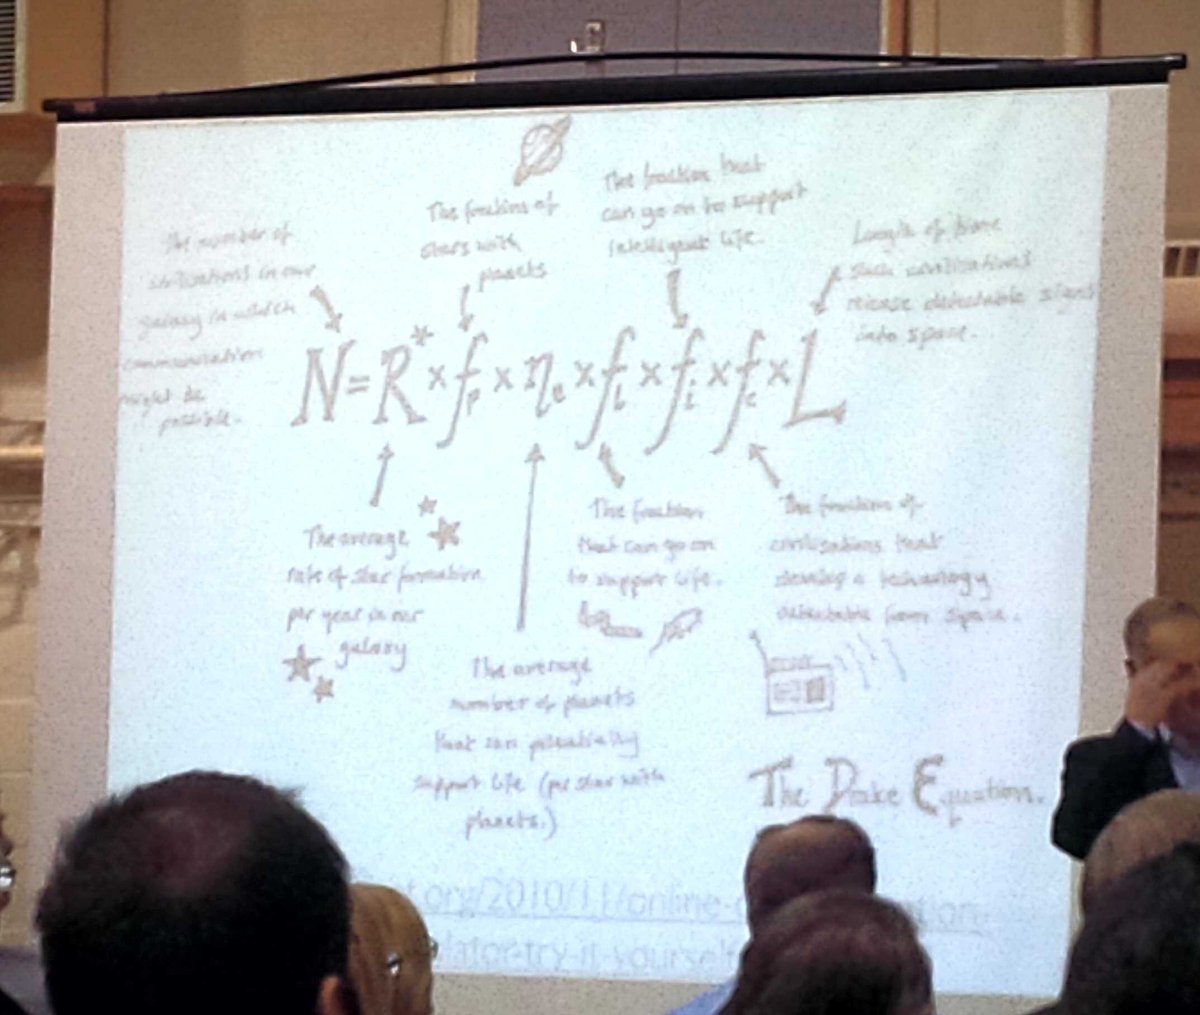 The number of
civilisations in our
galaxy in which
communication
might be
possible.
The fractions of
stars with
planets
The fraction that
can go on to support
intelligent life.
Length of time
such civilisations
release detectable signs
into space.
N=R*×fp×ηe×fl×fi×fc×L
The average
rate of star formation
per year in our
galaxy
The average
number of planets
that can potentially
support life (per star with
planets.)
The fraction
that can go on
to support life.
The fractions of
civilisations that
develop a technology
detectable from space.
The Drake Equation.
.org/2010/11/online-
-try-it-yourself